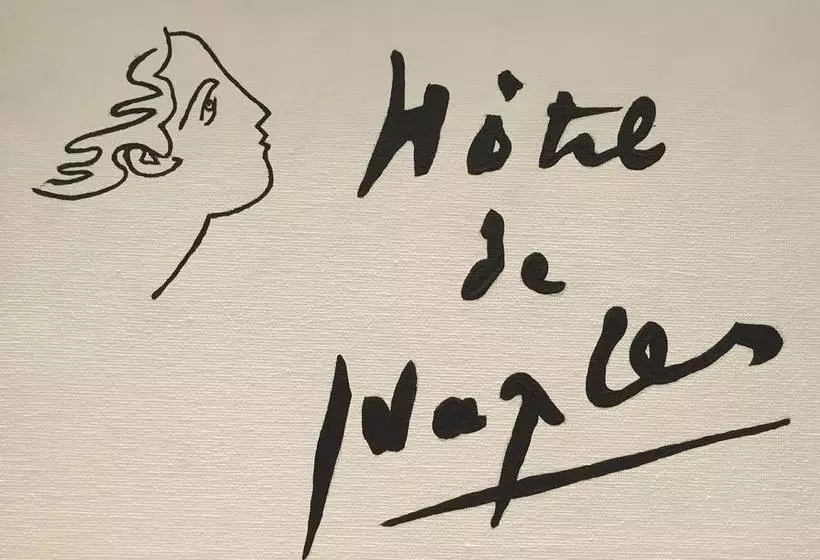 Hôtel
de
Naples